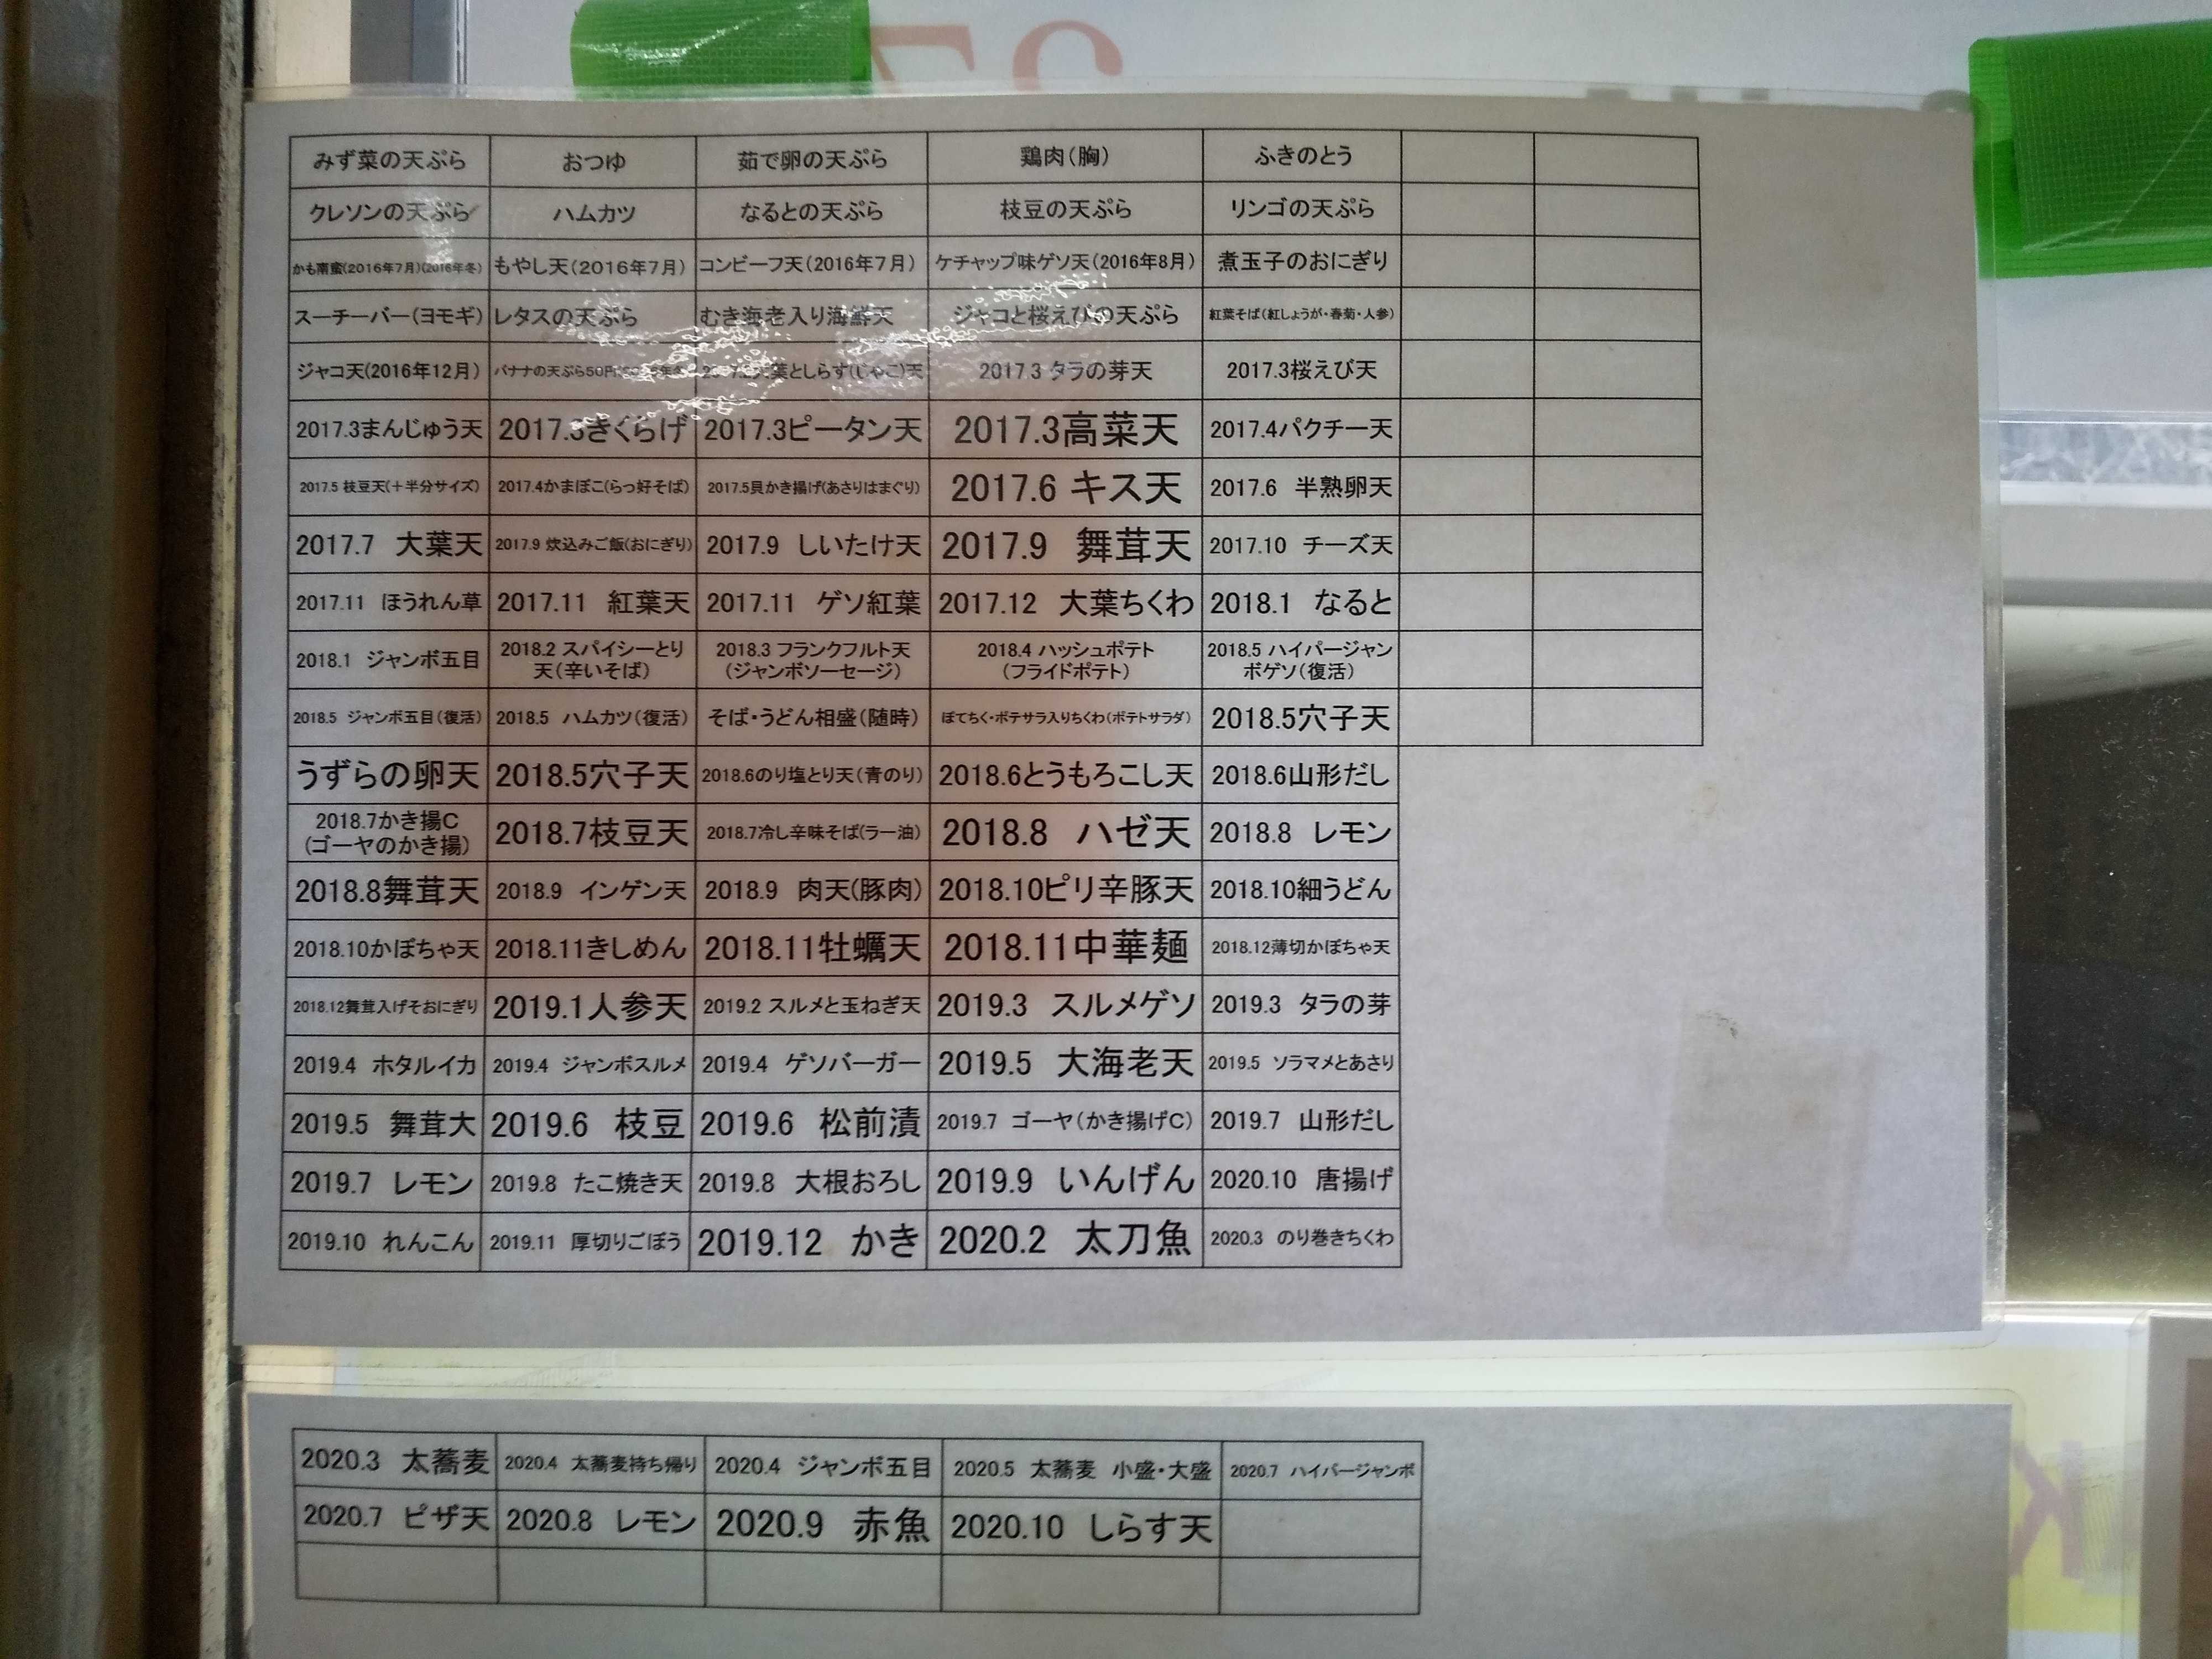 みず菜の天ぷら おつゆ 茹で卵の天ぷら 鶏肉(胸) ふきのとう
クレソンの天ぷら ハムカツ なるとの天ぷら 枝豆の天ぷら リンゴの天ぷら
かも南蛮(2016年7月)(2016年冬) もやし天(2016年7月) コンビーフ天(2016年7月) ケチャップ味ゲソ天(2016年8月) 煮玉子のおにぎり
スーチーバー(ヨモギ) レタスの天ぷら むき海老入り海鮮天 ジャコと桜えびの天ぷら 紅葉そば(紅しょうが・春菊・人参)
ジャコ天(2016年12月) バナナの天ぷら50円 葉としらす(じゃこ)天 2017.3 タラの芽天 2017.3桜えび天
2017.3まんじゅう天 2017.3きくらげ 2017.3ピータン天 2017.3高菜天 2017.4パクチー天
2017.5 枝豆天(+半分サイズ) 2017.4かまぼこ(らっ好そば) 2017.5貝かき揚げ(あさりはまぐり) 2017.6 キス天 2017.6 半熟卵天
2017.7 大葉天 2017.9 炊込みご飯(おにぎり) 2017.9 しいたけ天 2017.9 舞茸天 2017.10 チーズ天
2017.11 ほうれん草 2017.11 紅葉天 2017.11 ゲソ紅葉 2017.12 大葉ちくわ 2018.1 なると
2018.1 ジャンボ五目 2018.2 スパイシーとり天(辛いそば) 2018.3 フランクフルト天(ジャンボソーセージ) 2018.4 ハッシュポテト(フライドポテト) 2018.5 ハイパージャンボゲソ(復活)
2018.5 ジャンボ五目(復活) 2018.5 ハムカツ(復活) そば・うどん相盛(随時) ぽてちく・ポテサラ入りちくわ(ポテトサラダ) 2018.5穴子天
うずらの卵天 2018.5穴子天 2018.6のり塩とり天(青のり) 2018.6とうもろこし天 2018.6山形だし
2018.7かき揚C(ゴーヤのかき揚) 2018.7枝豆天 2018.7冷し辛味そば(ラー油) 2018.8 ハゼ天 2018.8 レモン
2018.8舞茸天 2018.9 インゲン天 2018.9 肉天(豚肉) 2018.10ピリ辛豚天 2018.10細うどん
2018.10かぼちゃ天 2018.11きしめん 2018.11牡蠣天 2018.11中華麺 2018.12薄切かぼちゃ天
2018.12舞茸入げそおにぎり 2019.1人参天 2019.2 スルメと玉ねぎ天 2019.3 スルメゲソ 2019.3 タラの芽
2019.4 ホタルイカ 2019.4 ジャンボスルメ 2019.4 ゲソバーガー 2019.5 大海老天 2019.5 ソラマメとあさり
2019.5 舞茸大 2019.6 枝豆 2019.6 松前漬 2019.7 ゴーヤ(かき揚げC) 2019.7 山形だし
2019.7 レモン 2019.8 たこ焼き天 2019.8 大根おろし 2019.9 いんげん 2020.10 唐揚げ
2019.10 れんこん 2019.11 厚切りごぼう 2019.12 かき 2020.2 太刀魚 2020.3 のり巻きちくわ
2020.3 太蕎麦 2020.4 太蕎麦持ち帰り 2020.4 ジャンボ五目 2020.5 太蕎麦 小盛・大盛 2020.7 ハイパージャンボ
2020.7 ピザ天 2020.8 レモン 2020.9 赤魚 2020.10 しらす天